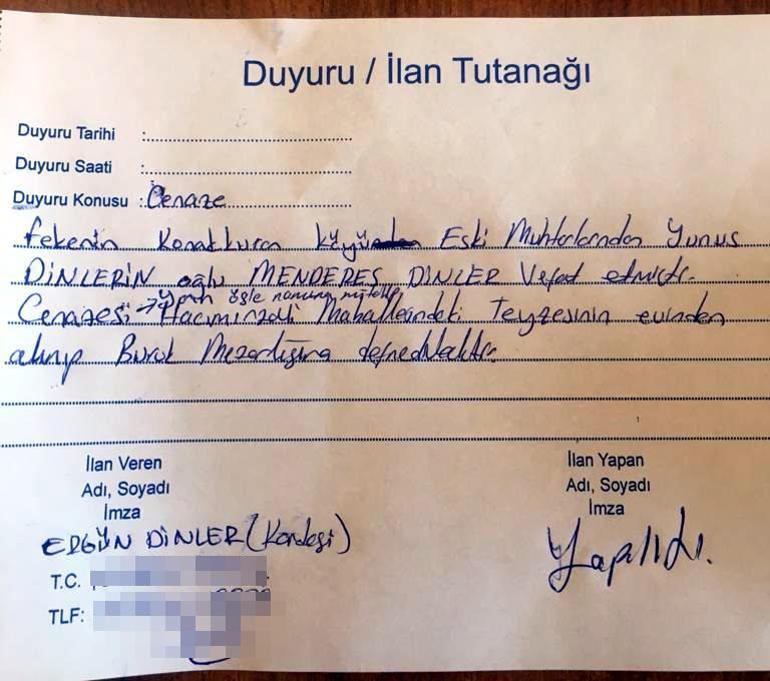 Duyuru / İlan Tutanağı
Duyuru Tarihi :
Duyuru Saati :
Duyuru Konusu : Cenaze
Fekenin Konakkuran köyünden Eski Muhtarlarından Yunus
DİNLERİN oğlu MENDERES DİNLER Vefat etmiştir.
yarın öğle namazına müteakip
Cenazesi → Hacımirzalı Mahallesindeki Teyzesinin evinden
alınıp Buruk Mezarlığına defnedilecektir.
İlan Veren
Adı, Soyadı
İmza
ERGÜN DİNLER (Kardeşi)
T.C.
TLF:
İlan Yapan
Adı, Soyadı
İmza
Yapıldı.